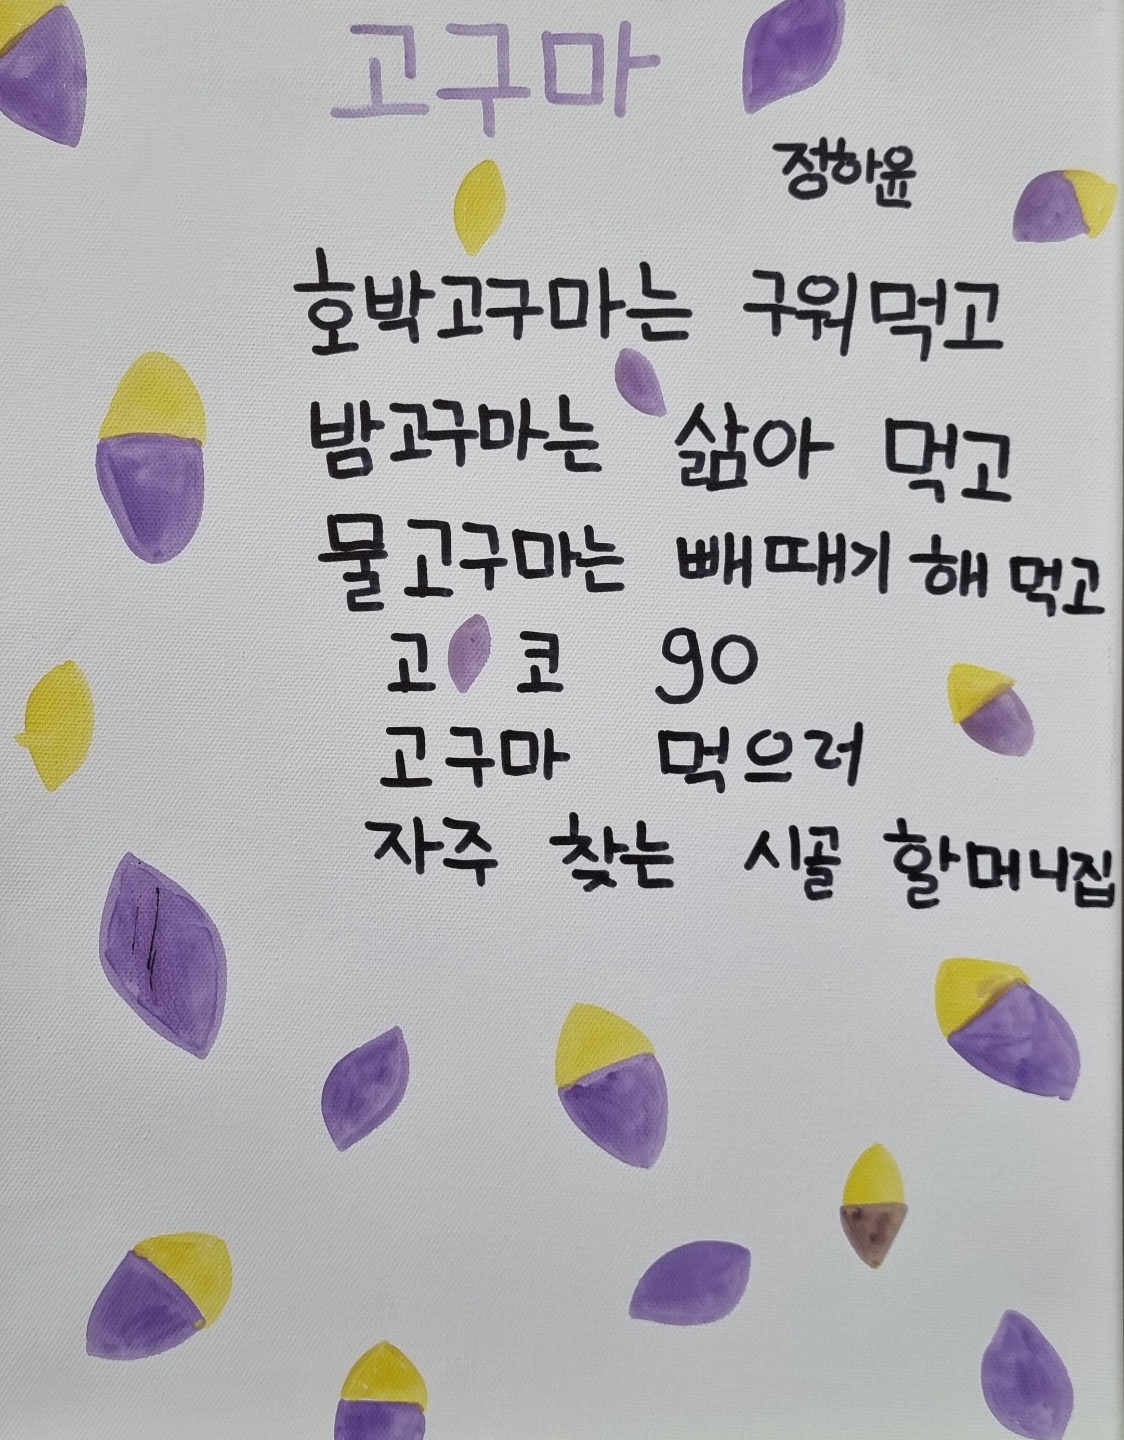 고구마
정하윤
호박고구마는 구워먹고
밤고구마는 삶아 먹고
물고구마는 빼때기 해 먹고
고 코 go
고구마 먹으러
자주 찾는 시골 할머니집